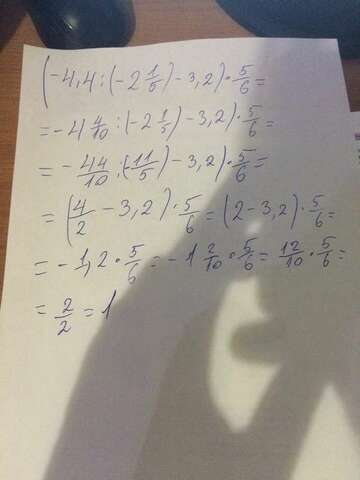 (-4,4 : (-2 1/5) - 3,2) · 5/6 =
= -4 4/10 : (-2 1/5) - 3,2) · 5/6 =
= -44/10 : (-11/5) - 3,2) · 5/6 =
= (4/2 - 3,2) · 5/6 = (2 - 3,2) · 5/6 =
= -1,2 · 5/6 = -1 2/10 · 5/6 = 12/10 · 5/6 =
= 2/2 = 1